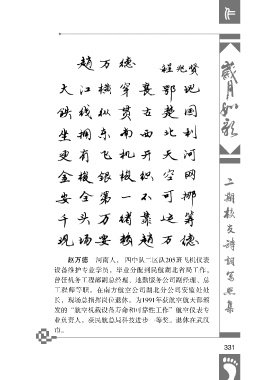 赵万德
程兆贤
大江横穿襄鄂地
铁线纵贯古楚国
坐拥东南西北利
更有飞机开天河
金梭银梭织空网
安全第一不可挪
千头万绪靠运筹
现场要赖赵万德
赵万德　河南人，四中队二区队205班飞机仪表
设备维护专业学员，毕业分配到民航湖北省局工作。
曾任机务工程部副总经理、地勤服务公司副经理、总
工程师等职。在南方航空公司湖北分公司安监处处
长、现场总指挥岗位退休。为1991年获航空航天部颁
发的“航空机载设备寿命和可靠性工作”航空仪表专
业负责人，获民航总局科技进步二等奖。退休在武汉
市。
岁月如歌
二期校友诗词写照集
331